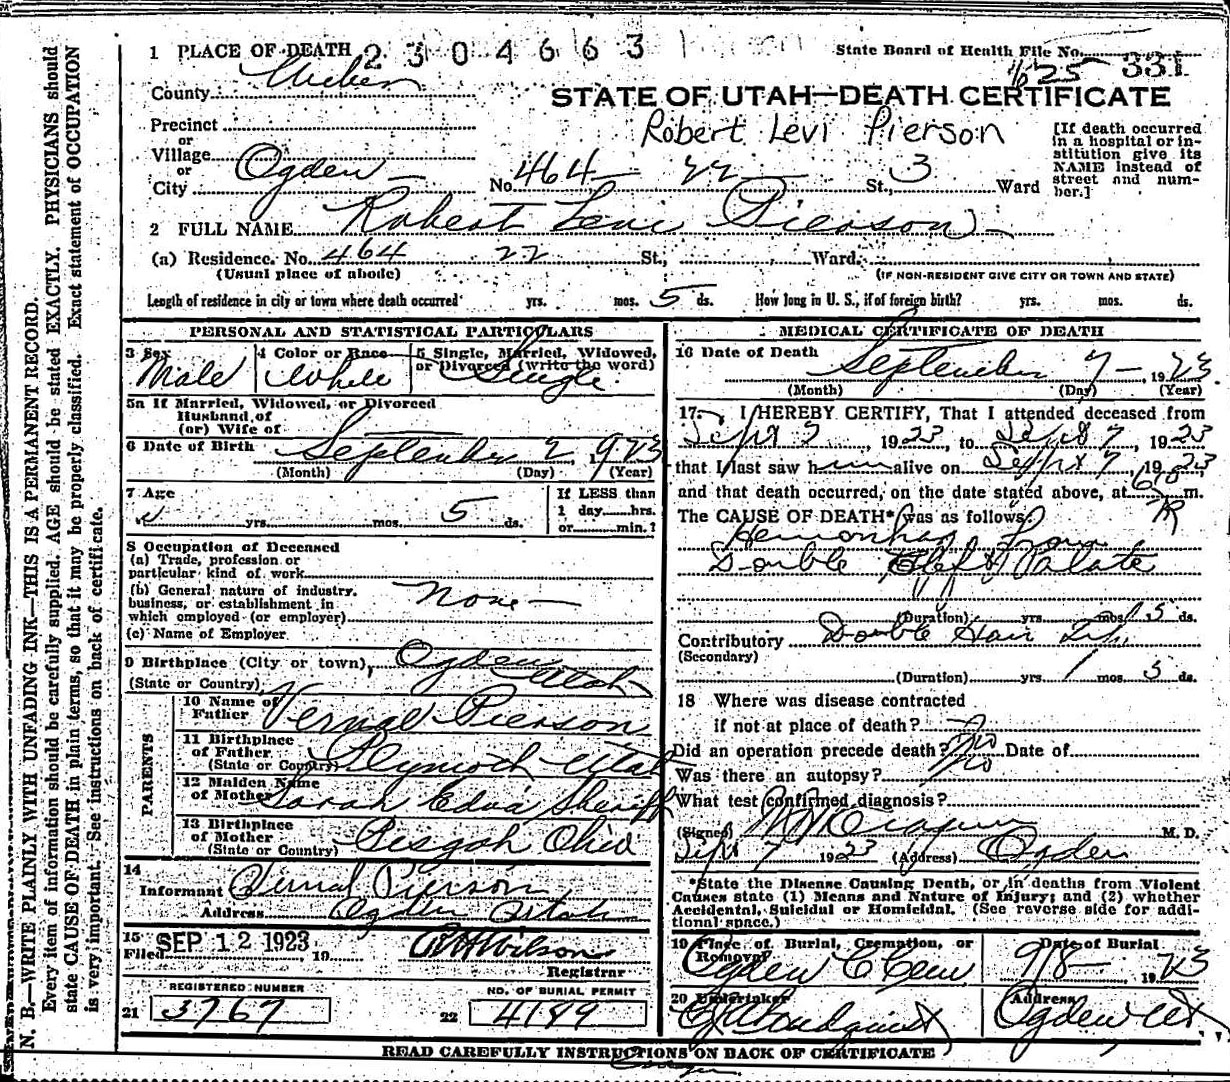 1 PLACE OF DEATH 2304663 State Board of Health File No.
625 331
County Weber
STATE OF UTAH—DEATH CERTIFICATE
Robert Levi Pierson
Precinct
or
Village
or
City Ogden No. 464 22 St., 3 Ward
[If death occurred
in a hospital or in-
stitution give its
NAME instead of
street and num-
ber.]
2 FULL NAME Robert Levi Pierson
(a) Residence. No. 464 22 St., Ward.
(Usual place of abode) (IF NON-RESIDENT GIVE CITY OR TOWN AND STATE)
Length of residence in city or town where death occurred yrs. mos. 5 ds. How long in U. S., if of foreign birth? yrs. mos. ds.
PERSONAL AND STATISTICAL PARTICULARS
3 Sex Male
4 Color or Race White
5 Single, Married, Widowed,
or Divorced (write the word)
Single
5a If Married, Widowed, or Divorced
Husband of
(or) Wife of
6 Date of Birth September 2, 1923
(Month) (Day) (Year)
7 Age yrs. mos. 5 ds.
If LESS than
1 day hrs.
or min.?
8 Occupation of Deceased
(a) Trade, profession or
particular kind of work
(b) General nature of industry.
business, or establishment in
which employed (or employer) None
(c) Name of Employer
9 Birthplace (City or town), Ogden
(State or Country) Utah
PARENTS
10 Name of
Father Vernal Pierson
11 Birthplace
of Father
(State or Country) Plymoth Utah
12 Maiden Name
of Mother Sarah Edva Sheriff
13 Birthplace
of Mother
(State or Country) Pisgah Ohio
14
Informant Vernal Pierson
Address Ogden Utah
15
Filed SEP 12 1923, 19 Wilson
Registrar
REGISTERED NUMBER
21 3767
NO. OF BURIAL PERMIT
22 4189
MEDICAL CERTIFICATE OF DEATH
16 Date of Death
September 7 — , 1923
(Month) (Day) (Year)
17 I HEREBY CERTIFY, That I attended deceased from
Sept 3 1923, to Sept 7, 1923
that I last saw him alive on Sept 7, 1923
and that death occurred, on the date stated above, at m.
The CAUSE OF DEATH* was as follows:
Hemorrhage from
Double Cleft Palate
(Duration) yrs. mos. 5 ds.
Contributory Double Hair Lip
(Secondary)
(Duration) yrs mos 5 ds.
18 Where was disease contracted
if not at place of death?
Did an operation precede death? No Date of
Was there an autopsy? No
What test confirmed diagnosis?
(Signed) M. D.
Sept 7 1923 (Address) Ogden
*State the Disease Causing Death, or in deaths from Violent
Causes state (1) Means and Nature of Injury; and (2) whether
Accidental, Suicidal or Homicidal. (See reverse side for addi-
tional space.)
19 Place of Burial, Cremation, or
Removal
Ogden C Cem
Date of Burial
9/8 — 1923
20 Undertaker
Address
Ogden Ut
READ CAREFULLY INSTRUCTIONS ON BACK OF CERTIFICATE
N. B.—WRITE PLAINLY WITH UNFADING INK—THIS IS A PERMANENT RECORD.
Every item of information should be carefully supplied. AGE should be stated EXACTLY. PHYSICIANS should
state CAUSE OF DEATH in plain terms, so that it may be properly classified. Exact statement of OCCUPATION
is very important. See instructions on back of certificate.